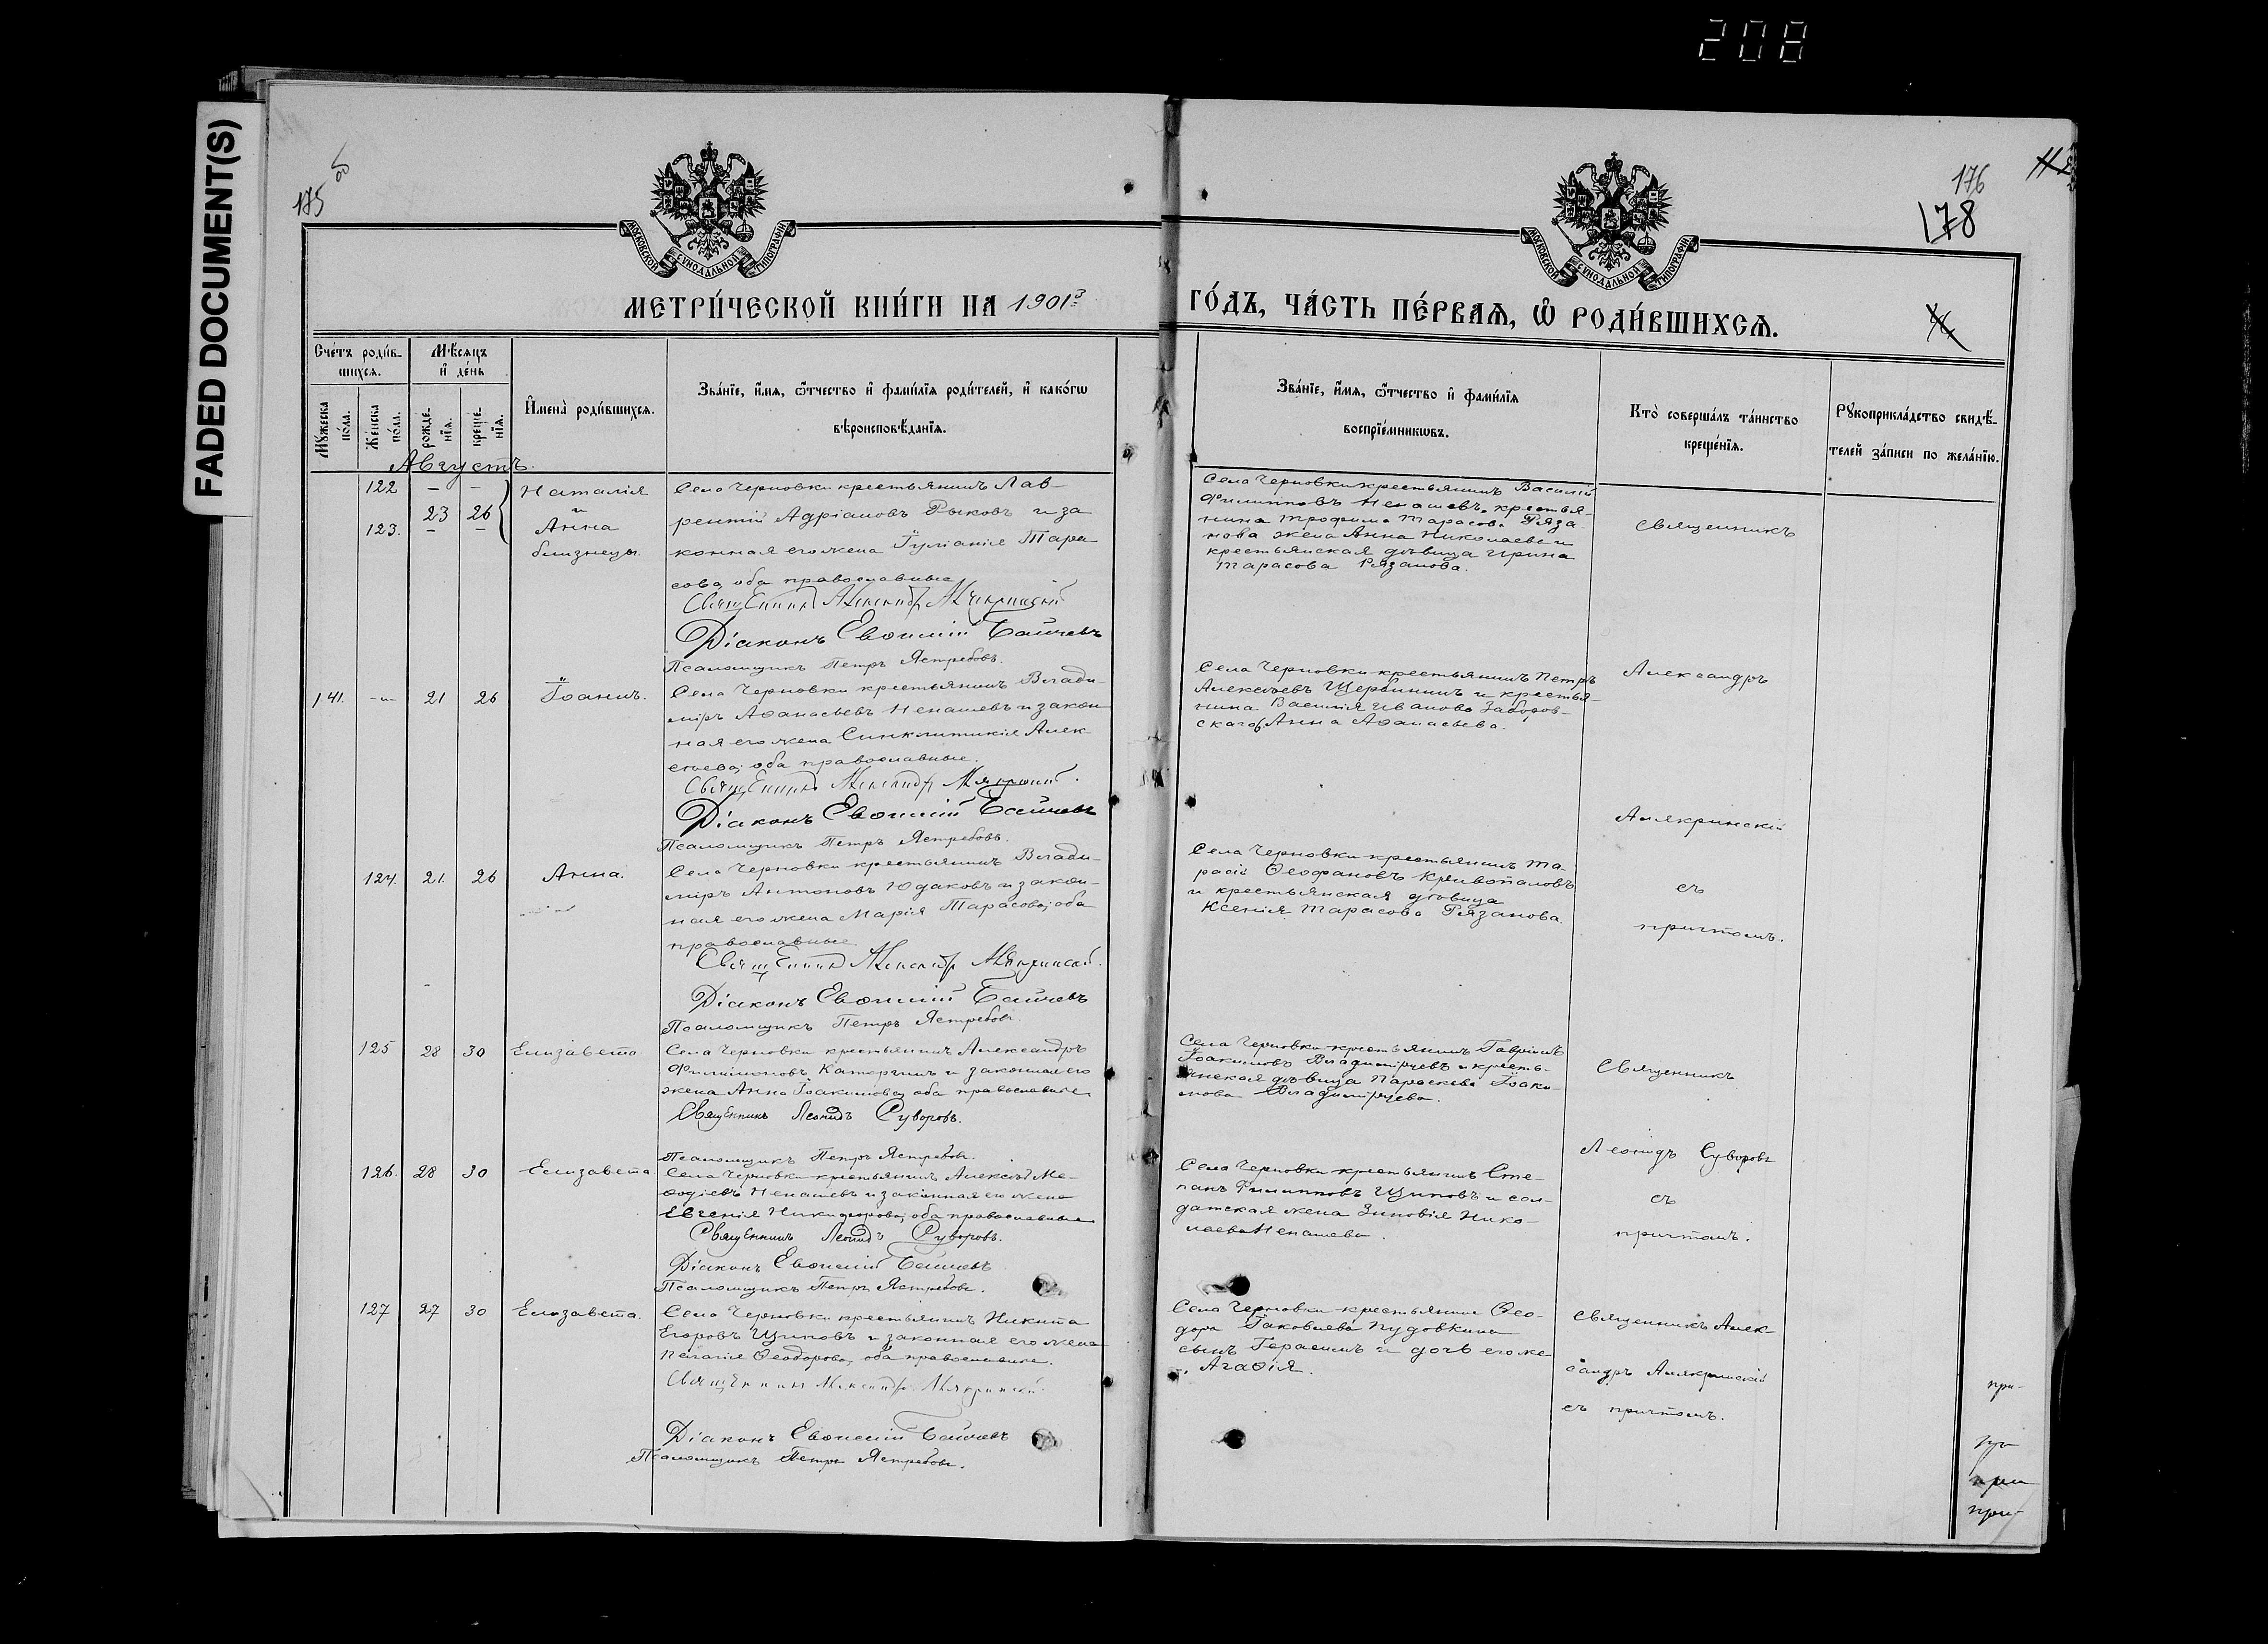 208
FADED DOCUMENT(S)
175 об
176
178
МОСКОВСКОЙ СѴНОДАЛЬНОЙ ТИПОГРАФІИ
МОСКОВСКОЙ СѴНОДАЛЬНОЙ ТИПОГРАФІИ
МЕТРИ́ЧЕСКОЙ КНИ́ГИ НА 1901й
ГО́ДЪ, ЧА́СТЬ ПЕ́РВАѦ, Ѽ РОДИ́ВШИХСѦ.
Сче́тъ роди́в-
шихсѧ.
Мѣ́сѧцъ
и҆ де́нь
Мꙋжеска по́ла.
Же́нска по́ла.
рожде-нїѧ.
креще-нїѧ.
И҆мена̀ роди́вшихсѧ.
Зва́нїе, и҆́мѧ, ѻ҆́тчество и҆ фами́лїѧ роди́телей, и҆ како́гѡ
вѣроисповѣ́данїѧ.
Зва́нїе, и҆́мѧ, ѻ҆́тчество и҆ фами́лїѧ
воспрїе́мникѡвъ.
Кто̀ соверша́лъ та́инство
креще́нїѧ.
Рꙋкоприкла́дство свидѣ́-
телей за́писи по жела́нїю.
Августъ.
122 — —
23 26
123. — —
Наталія
и
Анна
близнецы.
Села Черновки крестьянинъ Лав-
рентій Адріановъ Рыковъ и за
конная его жена Іуліанія Тара
сова, оба православные
Священникъ Александръ Алякринскій
Діаконъ Евѳимій Байчевъ
Псаломщикъ Петръ Ястребовъ.
Села Черновки крестьянинъ Василій
Филипповъ Ненашевъ, крестья-
нина Трофима Тарасова Ряза
нова жена Анна Николаева и
крестьянская дѣвица Ирина
Тарасова Рязанова.
Священникъ
141. -"- 21 26 Іоаннъ.
Села Черновки крестьянинъ Влади-
міръ Аѳанасьевъ Ненашевъ и закон
ная его жена Синклитикія Алек-
сѣева, оба православные.
Священникъ Александръ Алякринскій.
Діаконъ Евѳимій Байчевъ
Псаломщикъ Петръ Ястребовъ.
Села Черновки крестьянинъ Петръ
Алексѣевъ Щербининъ и крестья-
нина Василія Иванова Заборов-
скаго Анна Аѳанасьева.
Александръ
124. 21. 26 Анна.
Села Черновки крестьянинъ Влади-
міръ Антоновъ Юдаковъ и закон-
ная его жена Марія Тарасова, оба
православные
Священникъ Александръ Алякринскій.
Діаконъ Евѳимій Байчевъ
Псаломщикъ Петръ Ястребовъ.
Села Черновки крестьянинъ Та-
расій Ѳеофановъ Кривопаловъ
и крестьянская дѣвица
Ксенія Тарасова Рязанова.
Алякринскій
съ
причтомъ.
125 28 30 Елизавета
Села Черновки крестьянинъ Александръ
Филимоновъ Катеринъ и законная его
жена Анна Іоакимова, оба православные
Священникъ Леонидъ Суворовъ.
Псаломщикъ Петръ Ястребовъ.
Села Черновки крестьянинъ Гавріилъ
Іоакимовъ Владимірцевъ и кресть-
янская дѣвица Параскева Іоаки-
мова Владимірцева.
Священникъ
Леонидъ Суворовъ
съ
причтомъ.
126. 28 30 Елизавета.
Села Черновки крестьянинъ Алексѣй Ме-
ѳодіевъ Ненашевъ и законная его жена
Евгенія Никифорова, оба православные
Священникъ Леонидъ Суворовъ.
Діаконъ Евѳимій Байчевъ
Псаломщикъ Петръ Ястребовъ.
Села Черновки крестьянинъ Сте-
панъ Филипповъ Щиповъ и сол-
датская жена Зиновія Нико-
лаева Ненашева.
127 27 30 Елизавета.
Села Черновки крестьянинъ Никита
Егоровъ Щиповъ и законная его жена
Пелагія Ѳеодорова, оба православные.
Священникъ Александръ Алякринскій.
Діаконъ Евѳимій Байчевъ
Псаломщикъ Петръ Ястребовъ.
Села Черновки крестьянина Ѳео-
дора Іаковлева Пудовкина
сынъ Герасимъ и дочь его же
Агаѳія.
Священникъ Алек-
сандръ Алякринскій
съ причтомъ.
при-
при-
при-